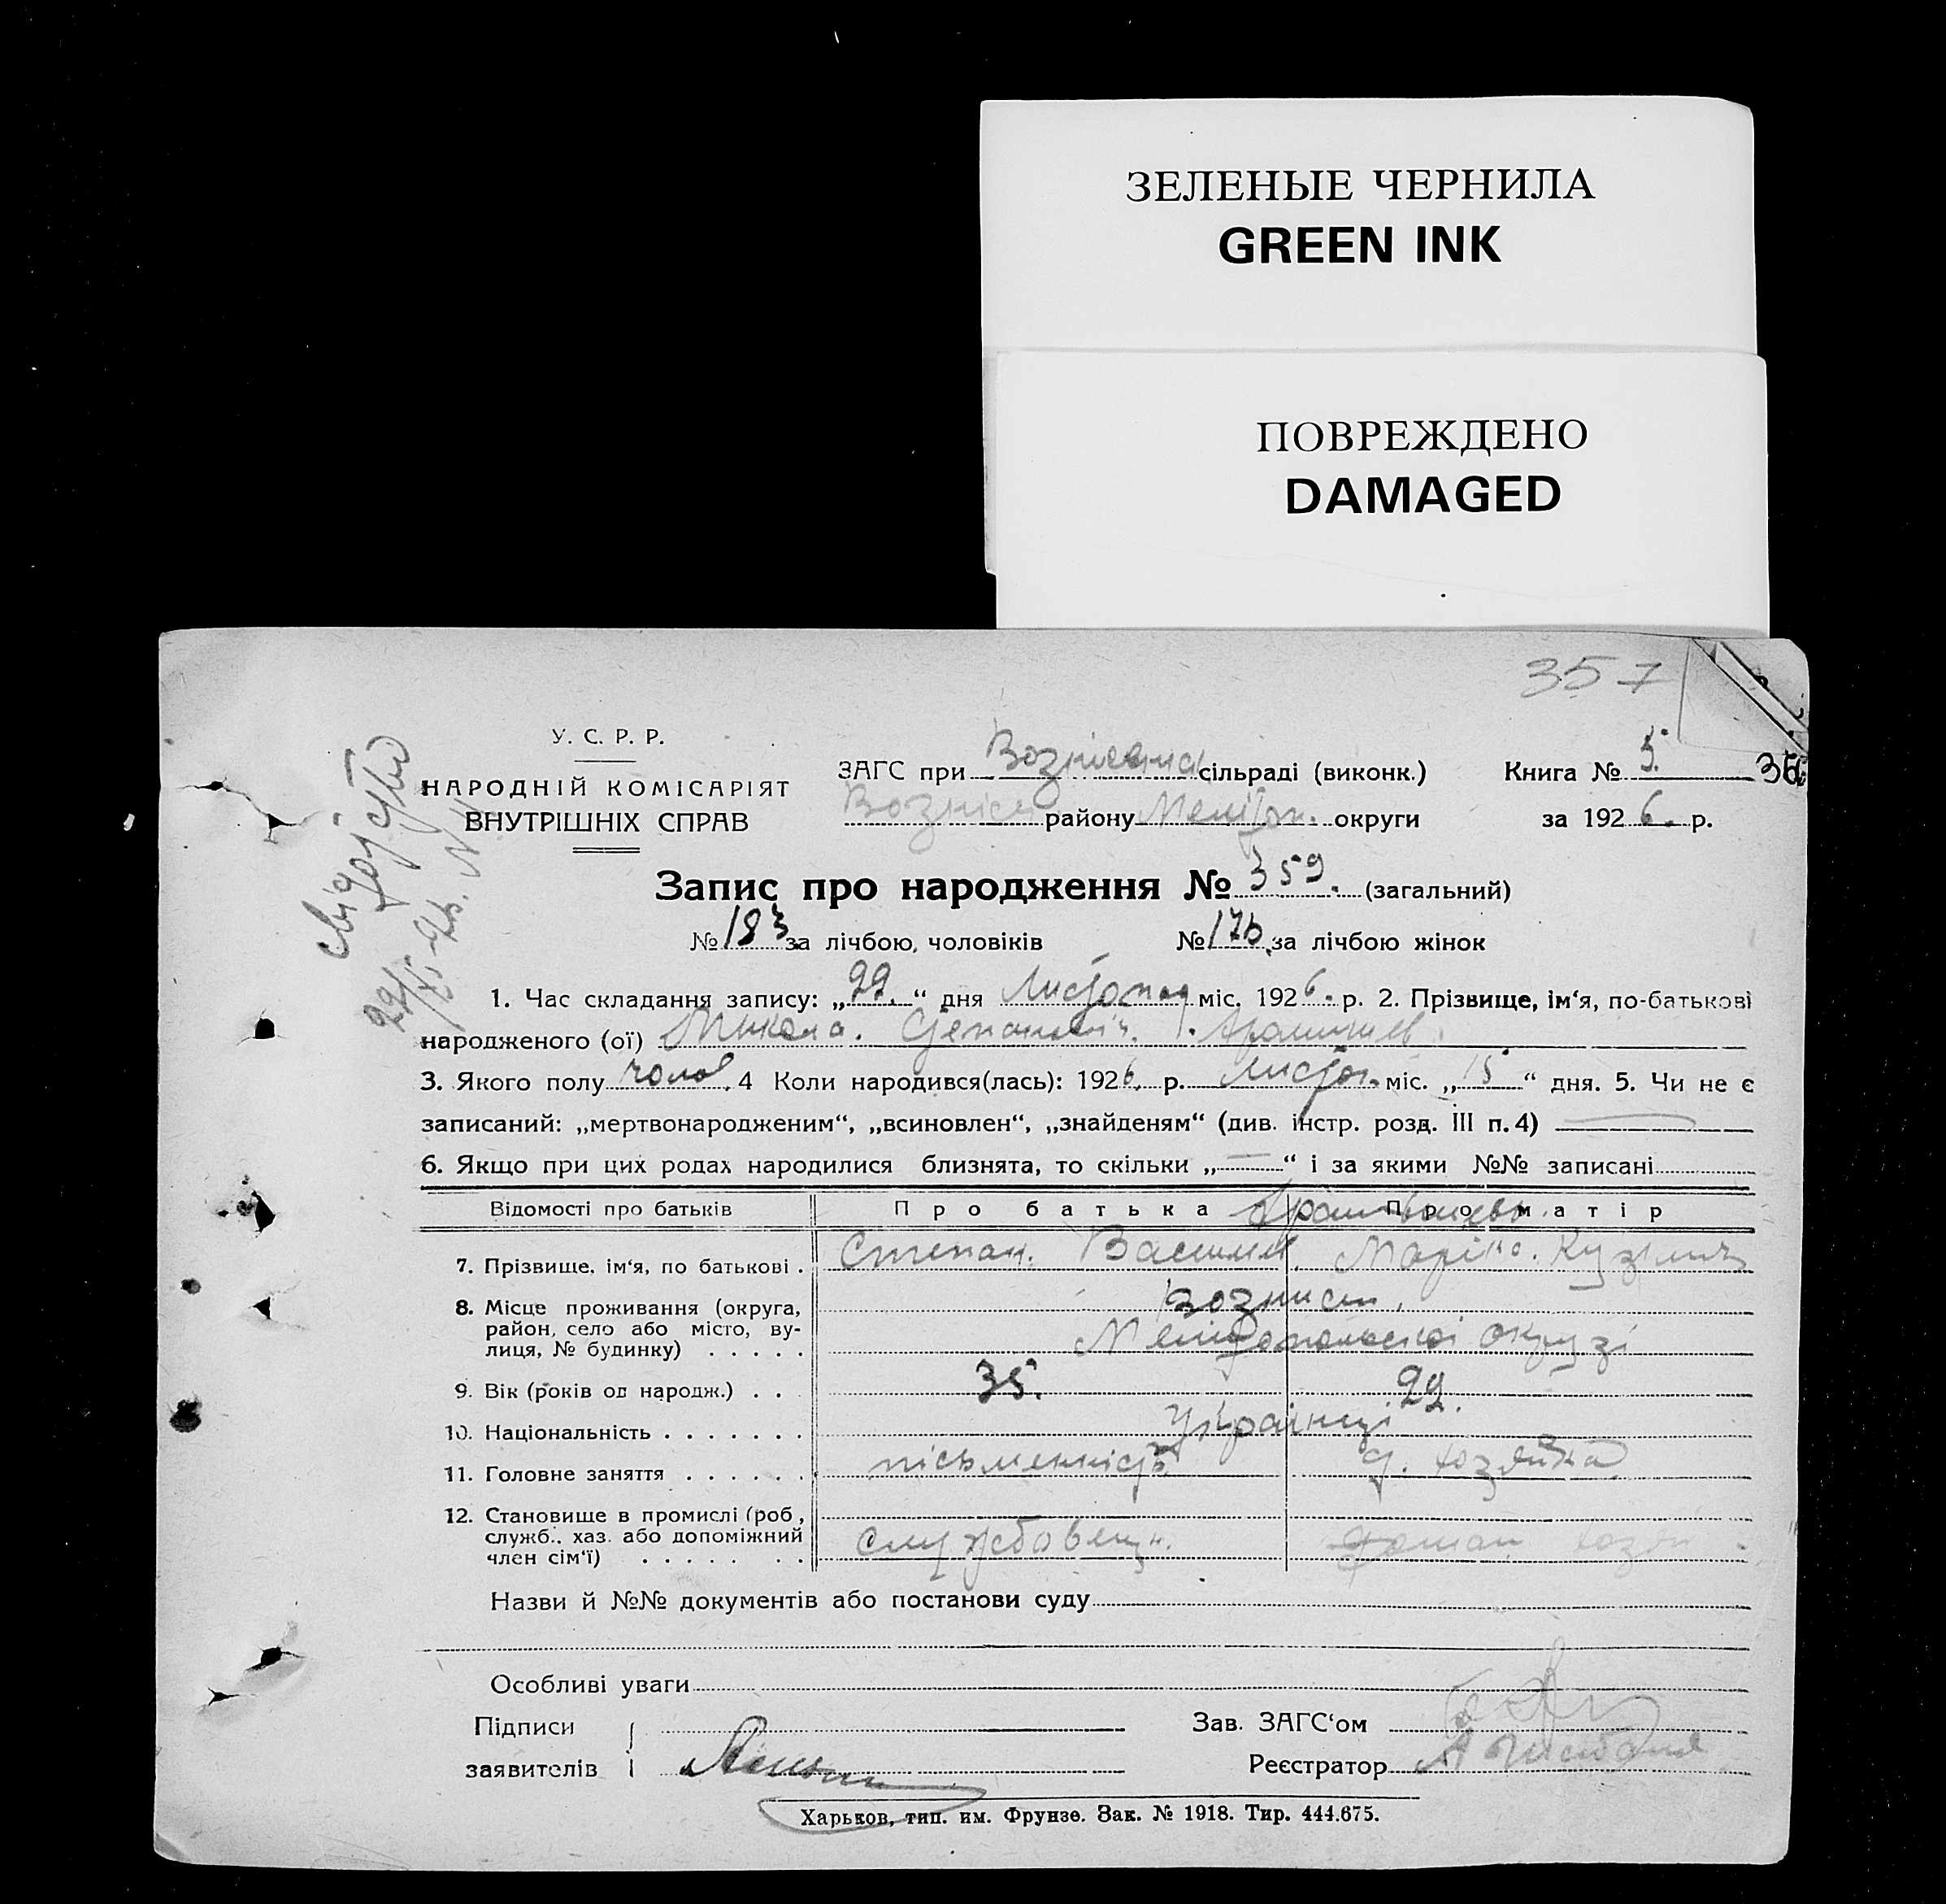 ЗЕЛЕНЫЕ ЧЕРНИЛА
GREEN INK
ПОВРЕЖДЕНО
DAMAGED
357
У. С. Р. Р.
НАРОДНІЙ КОМІСАРІЯТ
ВНУТРІШНІХ СПРАВ
ЗАГС при сільраді (виконк.)
Книга № 5.
району Мелітоп. округи
за 1926. р.
Запис про народження № 359. (загальний)
№ 183 за лічбою чоловіків
№ 176 за лічбою жінок
1. Час складання запису: „22.“ дня Листопад міс. 1926. р. 2. Прізвище, ім‘я, по-батькові
народженого (ої) Микола. Степанович.
3. Якого полу чолов. 4 Коли народився(лась): 1926. р. Листоп. міс. „15“ дня. 5. Чи не є
записаний: „мертвонародженим“, „всиновлен“, „знайденям“ (див. інстр. розд. III п. 4)
6. Якщо при цих родах народилися близнята, то скільки „—“ і за якими №№ записані
Відомості про батьків
Про батька
Про матір
7. Прізвище, ім‘я, по батькові .
Степан. Васильов. Марія. Кузьмич
8. Місце проживання (округа,
район, село або місто, ву-
лиця, № будинку) . . . . .
Мелітопольської округі
9. Вік (років од народж.) . . .
35.
22.
10. Національність . . . . . . .
Українці
11. Головне заняття . . . . . .
письменність
д. хозяйка
12. Становище в промислі (роб.,
служб., хаз. або допоміжний
член сім‘ї) . . . . . . .
службовець.
домаш хозяй
Назви й №№ документів або постанови суду
Особливі уваги
Підписи
заявителів
Зав. ЗАГС‘ом
Реєстратор
Харьков, тип. им. Фрунзе. Зак. № 1918. Тир. 444.675.